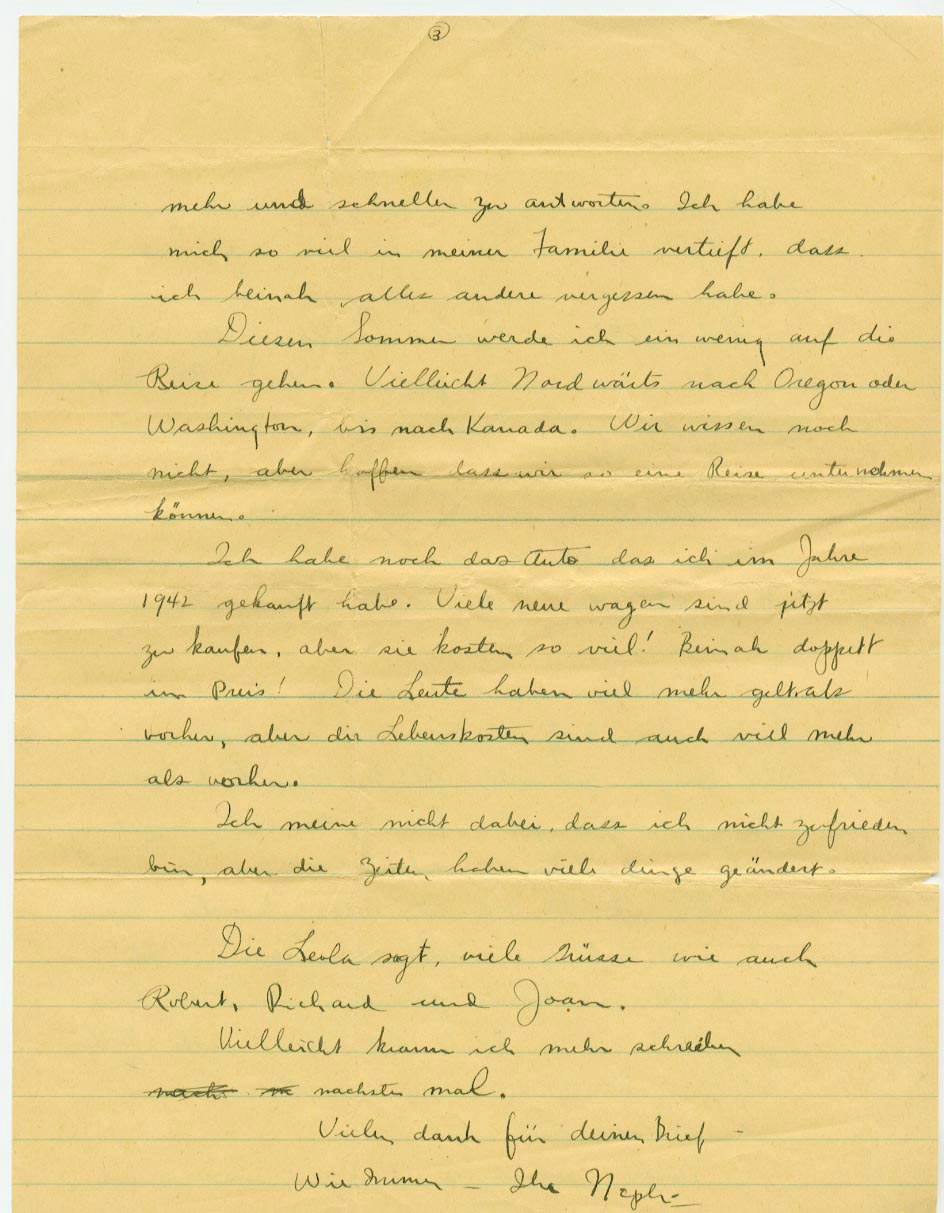 3
mehr und schneller zu antworten. Ich habe
mich so viel in meiner Familie vertieft, dass
ich beinah alles andere vergessen habe.
Diesen Sommer werde ich ein wenig auf die
Reise gehen. Vielleicht Nordwärts nach Oregon oder
Washington, bis nach Kanada. Wir wissen noch
nicht, aber hoffen dass wir so eine Reise unternehmen
können.
Ich habe noch das Auto das ich im Jahre
1942 gekauft habe. Viele neue wagen sind jetzt
zu kaufen, aber sie kosten so viel! Beinah doppelt
im Preis! Die Leute haben viel mehr als
vorher, aber die Lebenskosten sind auch viel mehr
als vorher.
Ich meine nicht dabei, dass ich nicht zufrieden
bin, aber die Zeiten haben viele dinge geändert.
Die Leola sagt, viele Grüsse wie auch
Robert, Richard und Joan.
Vielleicht kann ich mehr schreiben
nachsten mal.
Vielen dank für deinen Brief -
Wie Immer - Ihr Neph-